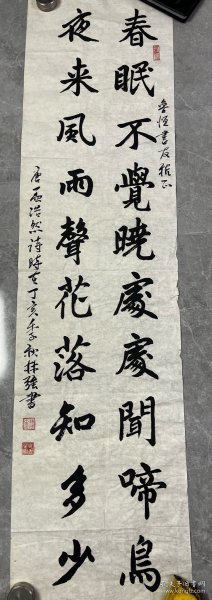 春眠不覺曉處處聞啼鳥
夜来風雨聲花落知多少
書友雅正
唐孟浩然詩時在丁亥年秋林強書